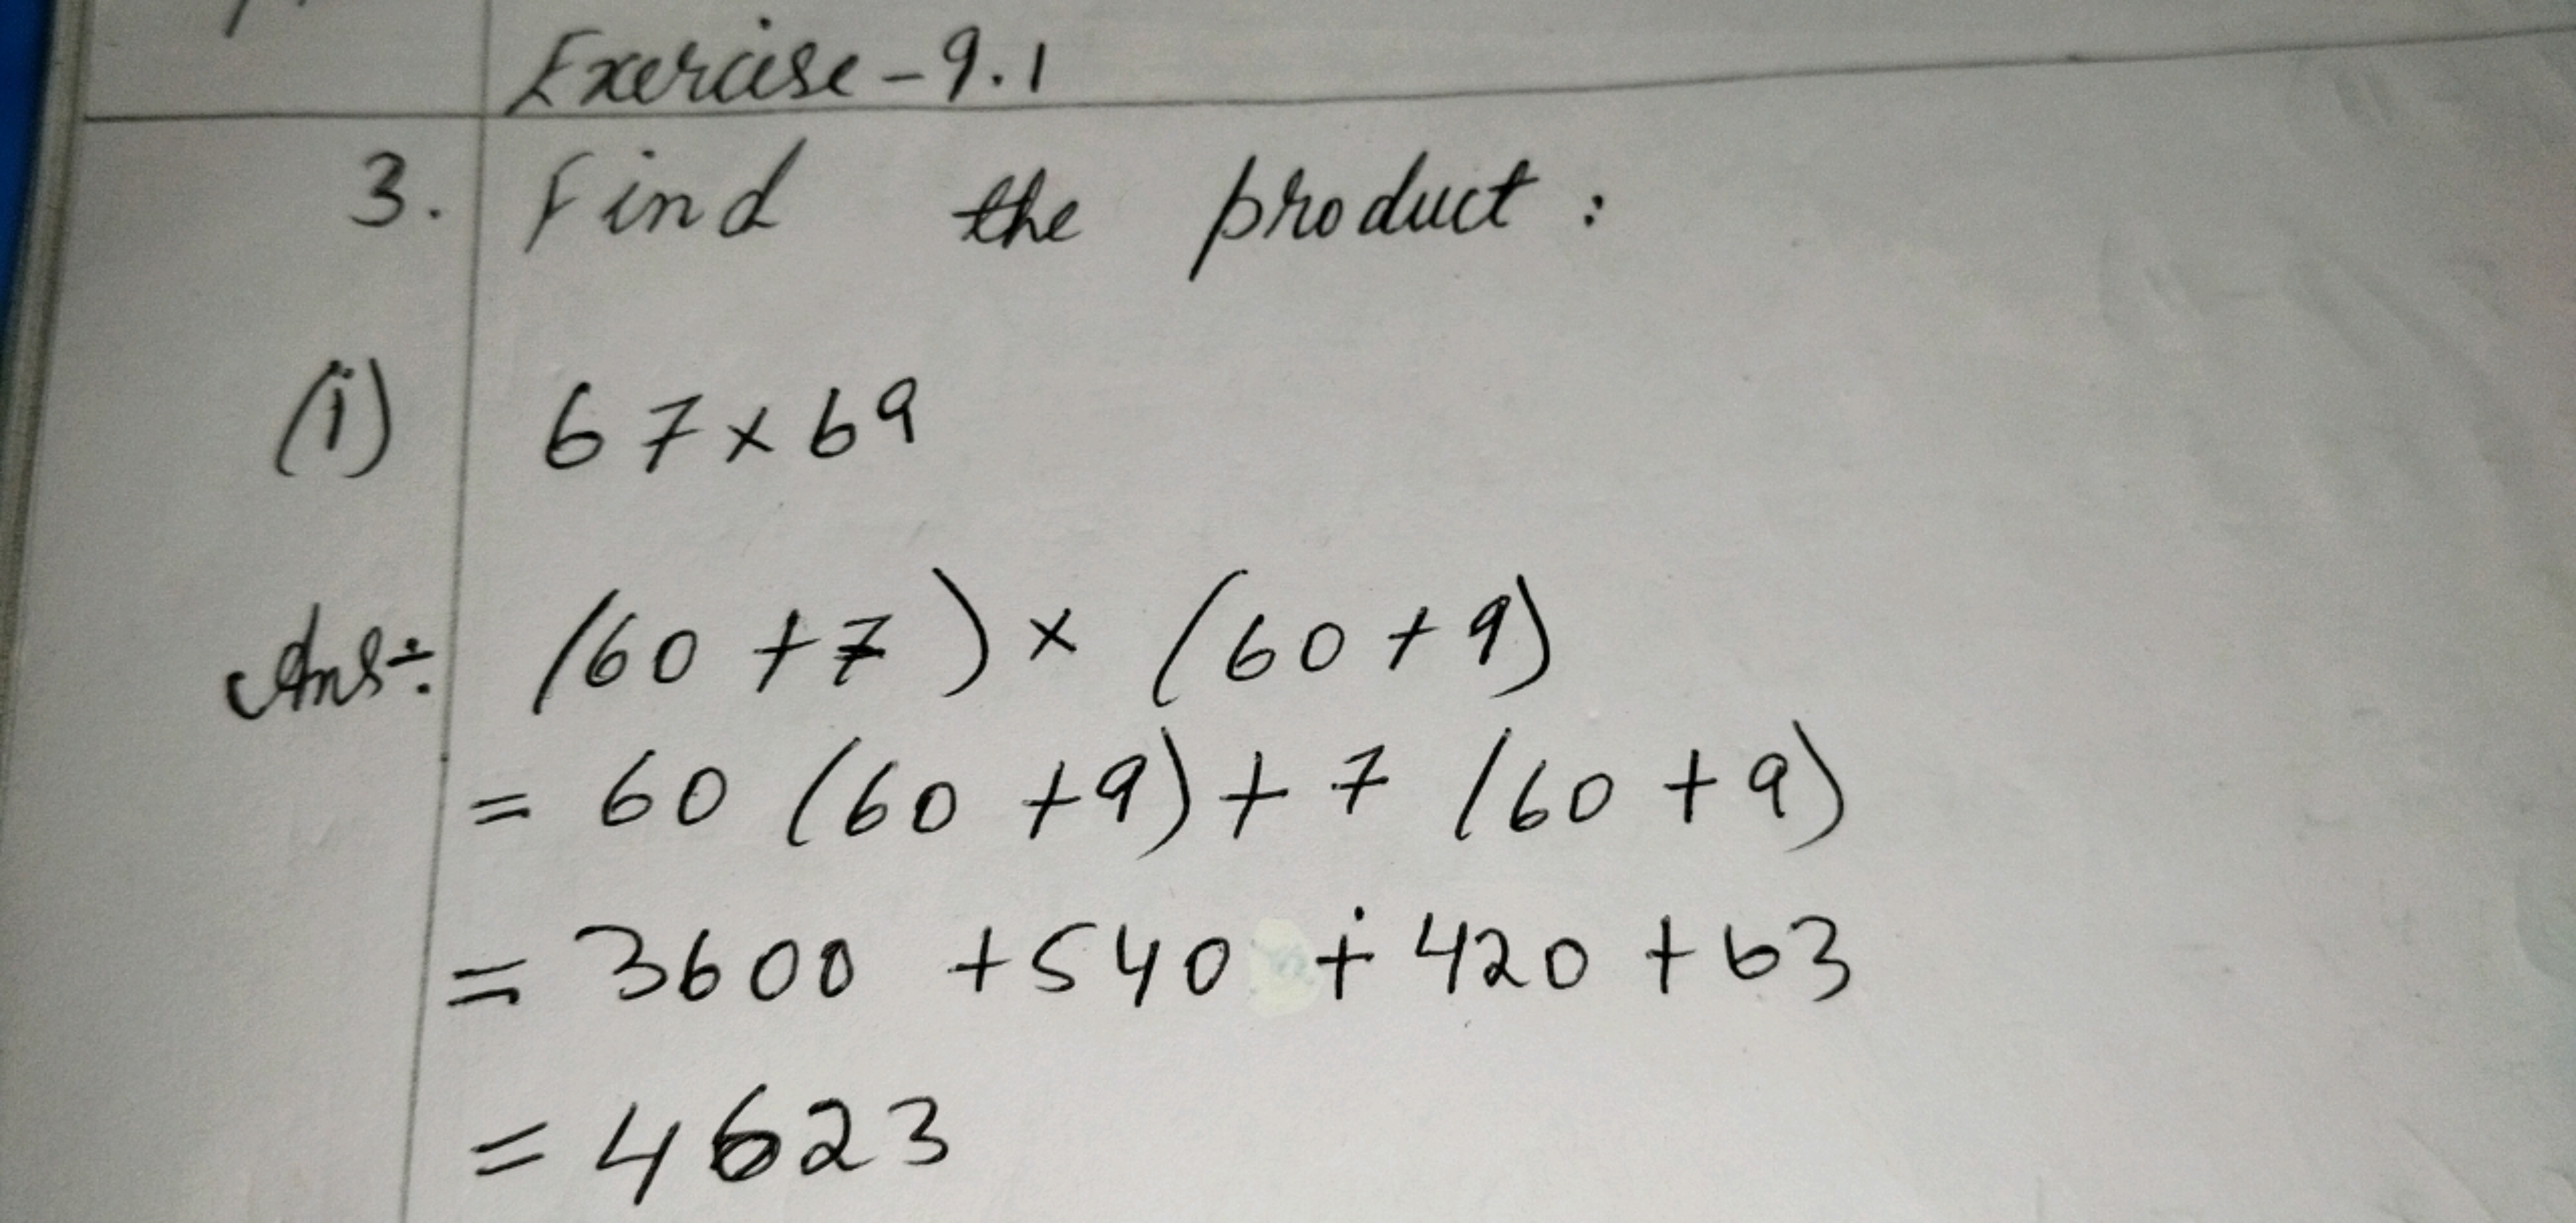 Exercise - 9.1
3. Find the product :
(i) 67 × 69
Ans÷ (60 + 7) × (60 + 9)
= 60 (60 + 9) + 7 (60 + 9)
= 3600 + 540 + 420 + 63
= 4623